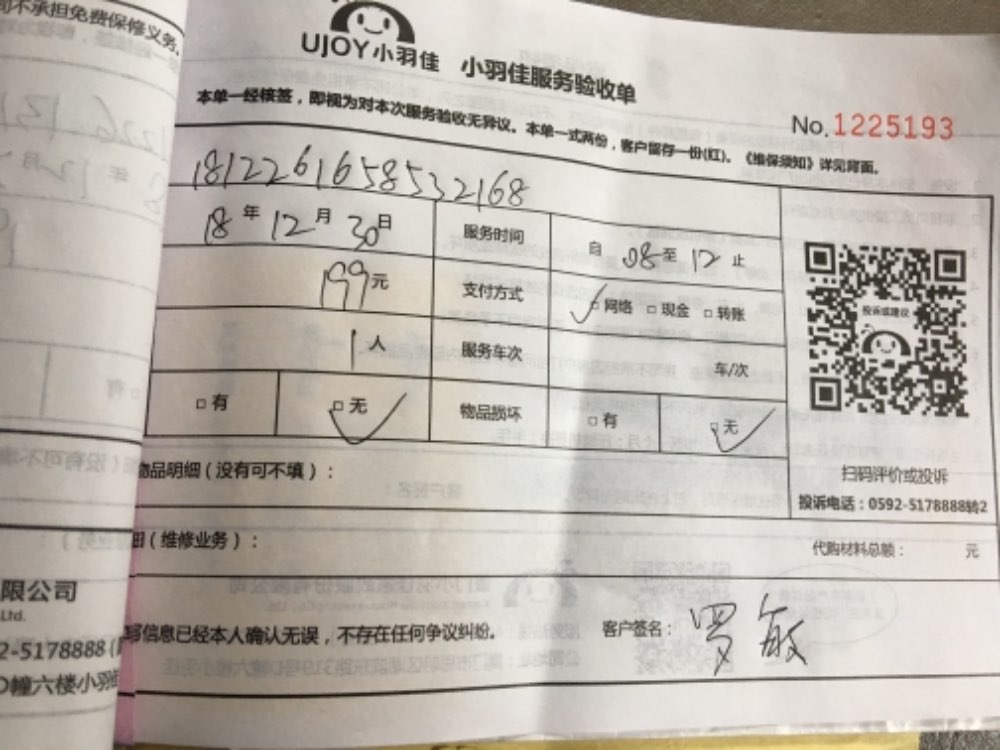 不承担免费保修义务、
UJOY小羽佳 小羽佳服务验收单
本单一经核签，即视为对本次服务验收无异议。本单一式两份，客户留存一份(红)。《维保须知》详见背面。
No. 1225193
1812261658532168
18年12月30日 服务时间 自08至12止
199元 支付方式 ☑网络 □现金 □转账
1人 服务车次 车/次
□有 ☑无 物品损坏 □有 ☑无
投诉或建议
物品明细（没有可不填）：
扫码评价或投诉
投诉电话：0592-5178888转2
（维修业务）：
代购材料总额： 元
写信息已经本人确认无误，不存在任何争议纠纷。
客户签名：罗敏
限公司
Ltd.
2-5178888
D幢六楼小羽